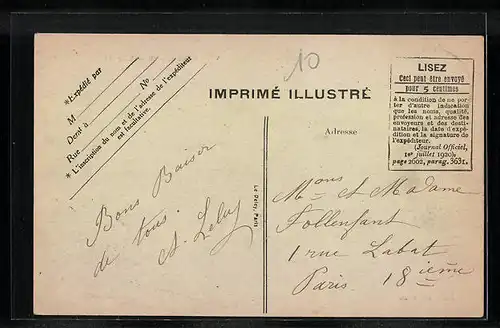 10
*Expédié par
M
No
Demt à
Rue
*L'inscription du nom et de l'adresse de l'expéditeur
est facultative.
IMPRIMÉ ILLUSTRÉ
LISEZ
Ceci peut être envoyé
pour 5 centimes
à la condition de ne por
ter d'autre indication
que les noms, qualité,
profession et adresse des
envoyeurs et des desti-
nataires, la date d'expé-
dition et la signature de
l'expéditeur.
(Journal Officiel,
1er juillet 1920).
page 2002, parag. 3631.
Adresse
Bons Baiser
de tous.
Le Deley, Paris
Mons et Madame
Follenfant
1 rue Labat
Paris 18ième